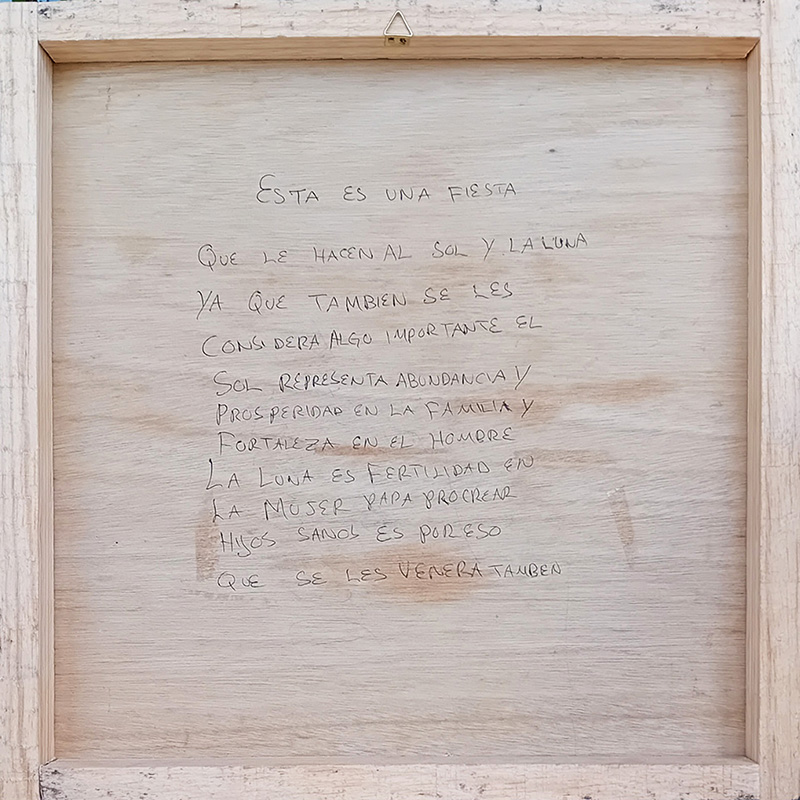 ESTA ES UNA FIESTA
QUE LE HACEN AL SOL Y LA LUNA
YA QUE TAMBIEN SE LES
CONSIDERA ALGO IMPORTANTE EL
SOL REPRESENTA ABUNDANCIA Y
PROSPERIDAD EN LA FAMILIA Y
FORTALEZA EN EL HOMBRE
LA LUNA ES FERTILIDAD EN
LA MUJER PAPA PROCREAR
HIJOS SANOS ES POR ESO
QUE SE LES VENERA TAMBEN